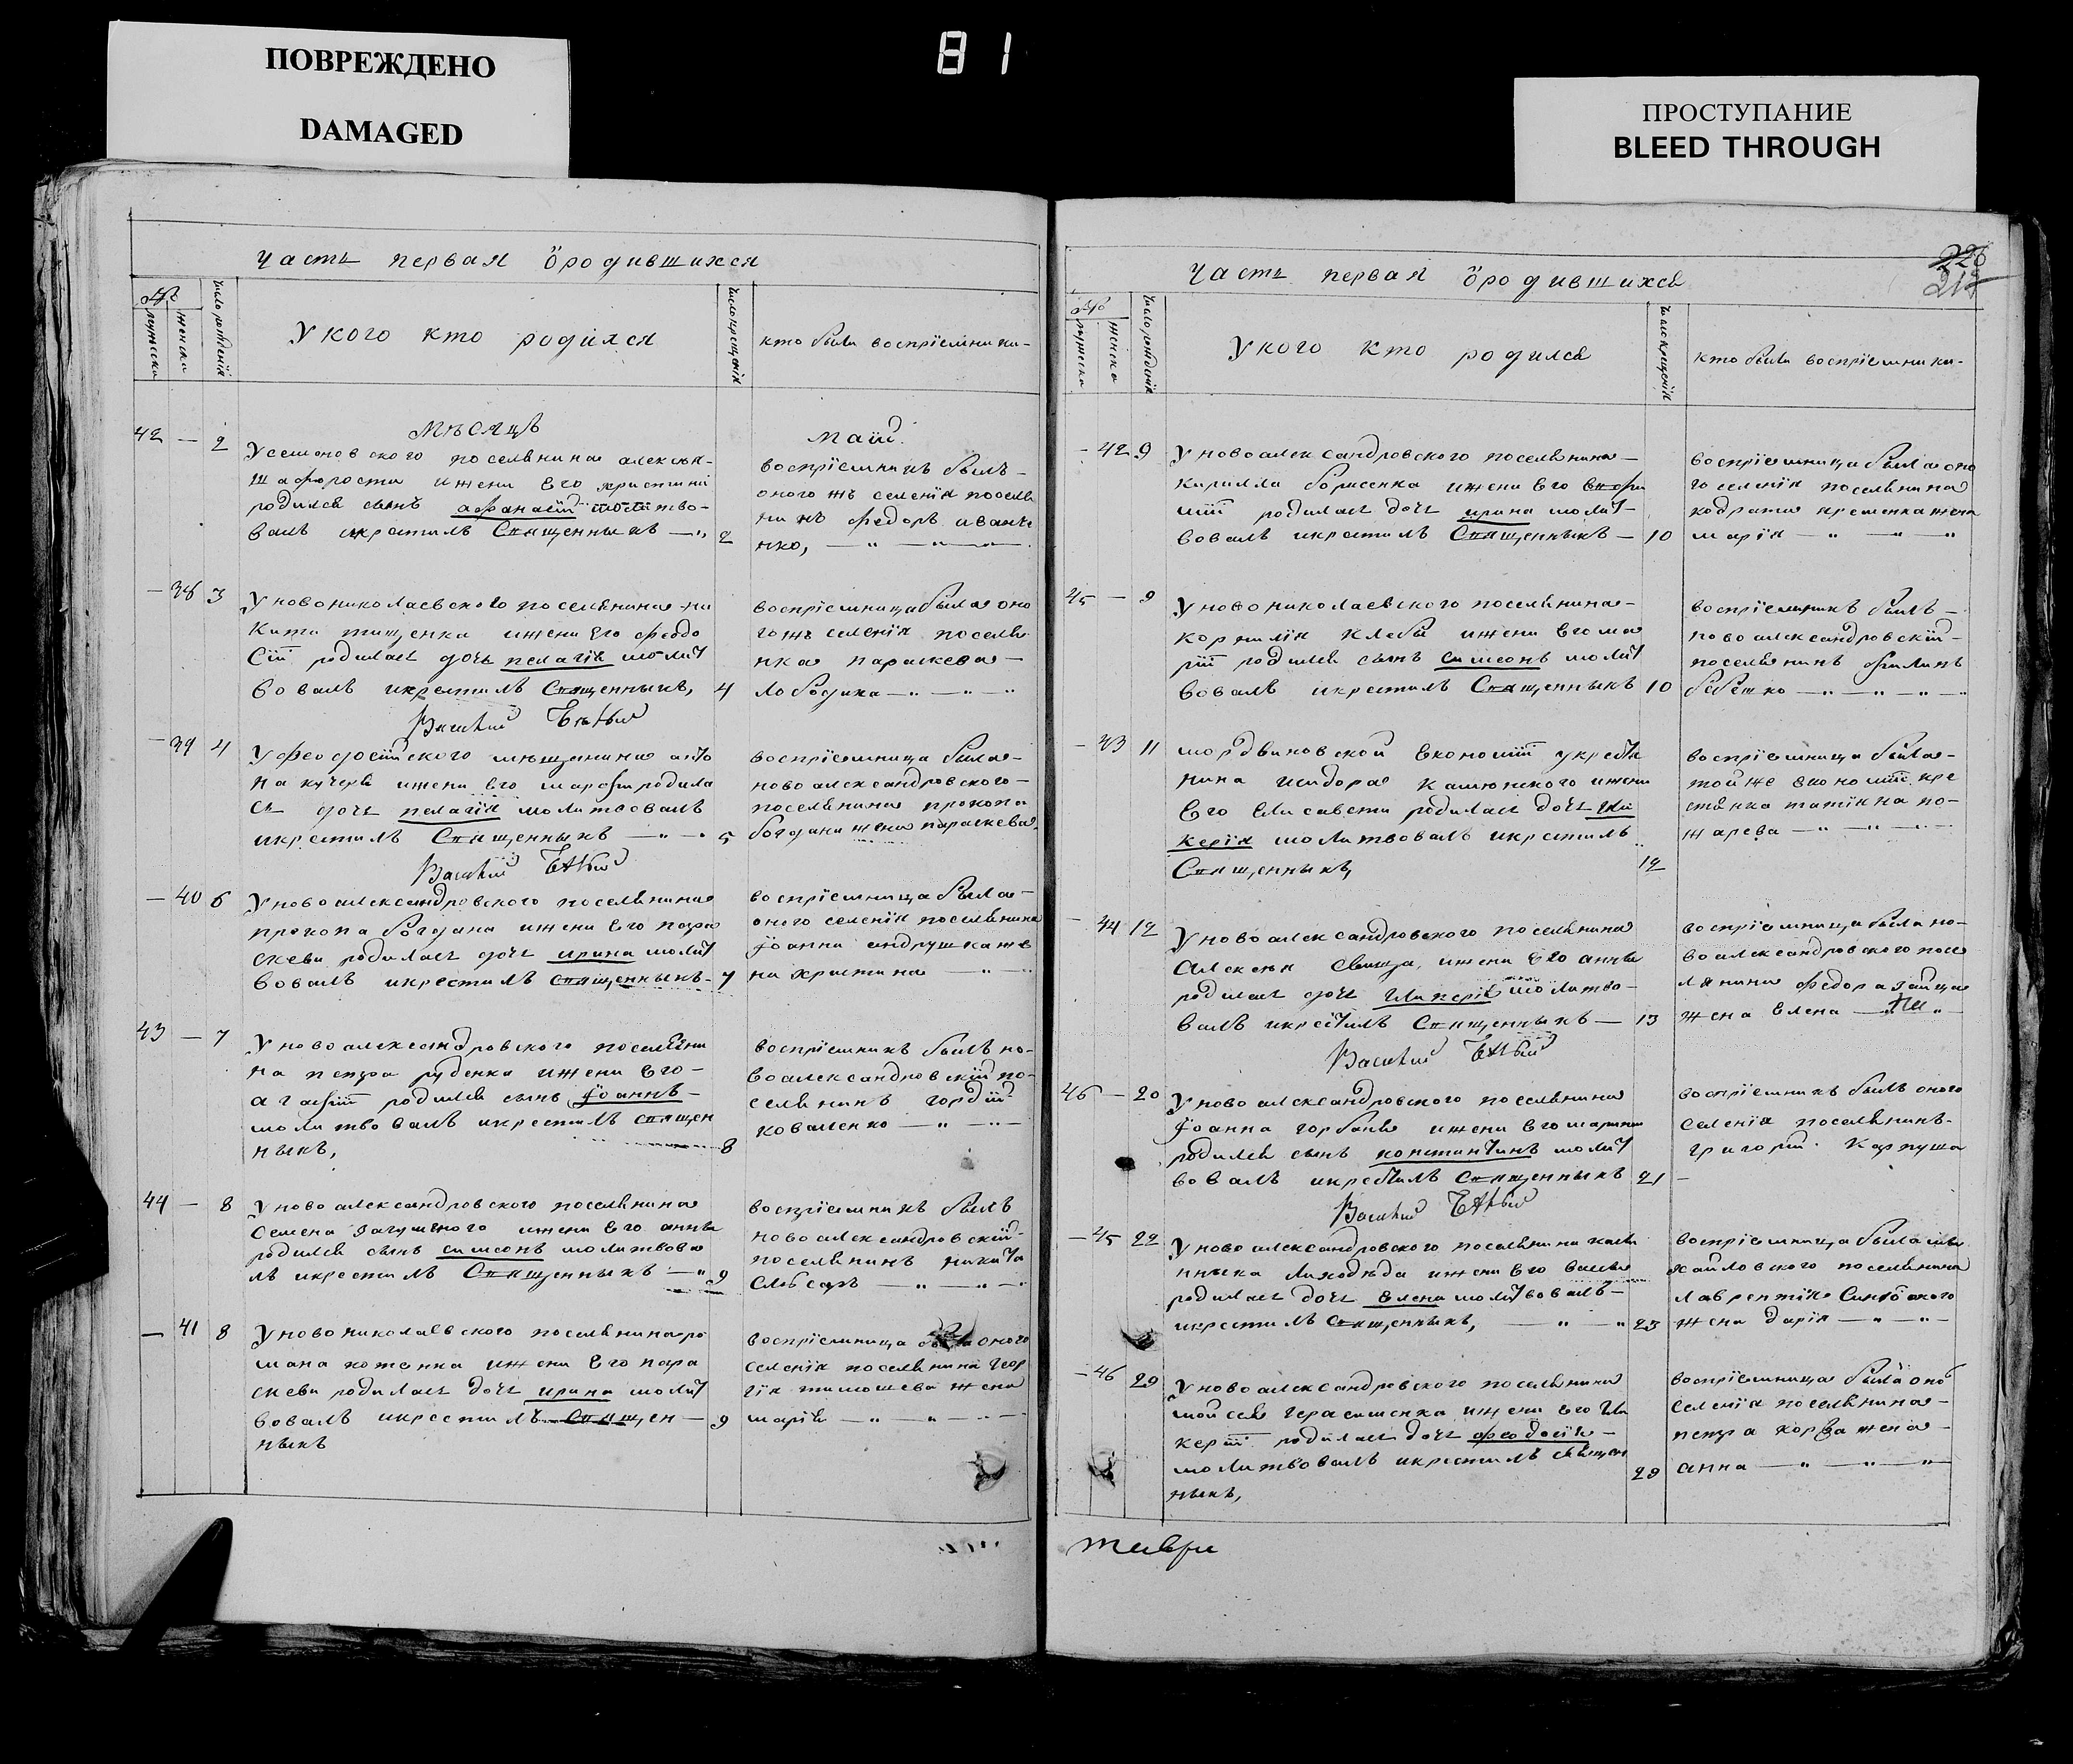 ПОВРЕЖДЕНО
DAMAGED
81
ПРОСТУПАНИЕ
BLEED THROUGH
Часть первая о родившихся
№
мужеска
женска
число рожденія
У кого кто родился
число крещенія
кто были воспріемники-
Мѣсяцъ
маій.
42 — 2
У семоновского поселянина алексѣя
родился сынъ афанасій молитво-
валъ икрестилъ Священникъ — 2
воспріемникъ былъ —
оного жъ селенія поселя
нинъ федоръ иване
нко,
— 38 3
У новониколаевского поселянина ни
киты тищенка ижени Его феодо
сіи родилась дочь пелагія молит
вовалъ икрестилъ Священникъ, 4
воспріемница была оно
гожъ селенія поселя
нка параскева —
Лободина
— 39 4
У феодосійского мѣщанина анто
на кучера ижени Его марфи родила
сь дочь пелагія молитвовалъ
икрестилъ Священникъ — 5
воспріемница была-
новоалександровского-
поселянина прокопа
богдана жена параскева
— 40 6
У новоалександровского поселянина
прокопа богдана ижени Его пара
скеви родилась дочь ирина молит
вовалъ икрестилъ священникъ- 7
воспріемница была-
оного селенія поселянина
Іоанна андрушка же
на христина
43 — 7
У новоалександровского поселяни
на петра руденка ижени Его-
агафіи родился сынъ Іоаннъ-
молитвовалъ икрестилъ священ
никъ, 8
воспріемникъ былъ но-
воалександровскій по-
селянинъ гордій
коваленко
44 — 8
У новоалександровского поселянина
Семена ижени Его анны
родился сынъ симеонъ молитвова
лъ икрестилъ Священникъ — 9
воспріемникъ былъ
новоалександровскій-
поселянинъ никита
слѣсарь
— 41 8
У новониколаевского поселянина ро
мана котенка ижени Его пара
скеви родилась дочь ирина молит
вовалъ икрестилъ Священ — 9
никъ
воспріемница была оного
селенія поселянина геор
гія тимошева жена
марія
Часть первая о родившихся
226
№
мужеска
женска
число рожденія
У кого кто родился
число крещенія
кто были воспріемники-
— 42 9
У новоалександровского поселянина —
кирилла борисенка ижени Его Евфи
міи родилась дочь ирина молит-
вовалъ икрестилъ Священникъ — 10
воспріемница была оно
го селенія поселянина
кодрата кременка жена
марія
45 — 9
У новониколаевского поселянина-
корнилія клебы ижени Его ма
ріи родился сынъ симеонъ молит
вовалъ икрестилъ Священникъ 10
воспріемникъ былъ —
новоалександровскій-
поселянинъ филипъ
бебешко
— 43 11
мордвиновской Економіи укрестья
нина исидора ижени
Его Елисавети родилась дочь гли
керія молитвовалъ икрестилъ
Священникъ, 12
воспріемница была-
тойже економіи кре
стянка татіяна по-
жарева
— 44 12
У новоалександровского поселянина
Алексѣя ижени Его анны
родилась дочь гликерія молитво-
валъ икрестилъ Священникъ — 13
воспріемница была но-
воалександровского посе
лянина федора
жена Елена
46 — 20
У новоалександровского поселянина
Іоанна горбаня ижени Его марины
родился сынъ константинъ молит
вовалъ икрестилъ Священникъ 21
воспріемникъ былъ оного
селенія поселянинъ-
григорій Карпуша
— 45 22
У новоалександровского поселянина кали
ника лиходѣда ижени Его
родилась дочь Елена молитвовалъ-
икрестилъ священникъ, 23
воспріемница была ми
хайловского поселянина
лаврентія
жена дарія
— 46 29
У новоалександровского поселянина
мойсея герасименка ижени Его гли
керіи родилась дочь феодосія-
молитвовалъ икрестилъ священ
никъ, 29
воспріемница была оно
селенія поселянина-
петра коржа жена-
анна